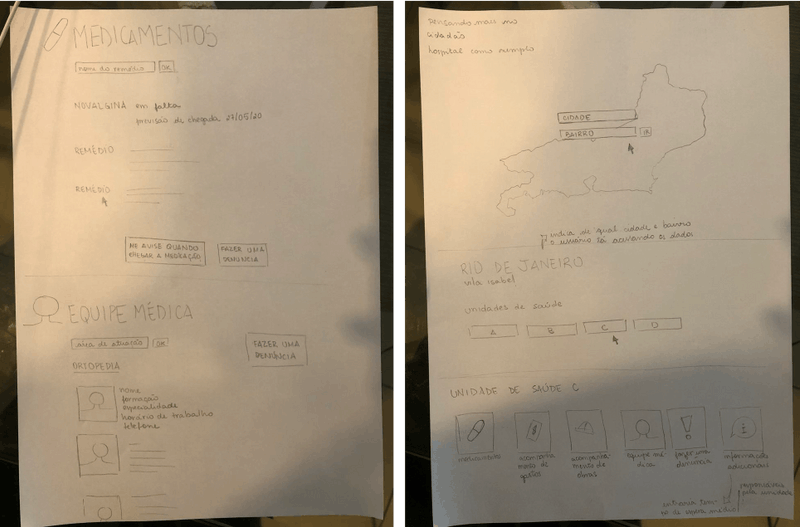 MEDICAMENTOS
nome do remédio OK
NOVALGINA em falta
previsão de chegada 27/05/20
REMÉDIO
REMÉDIO
ME AVISE QUANDO
CHEGAR A MEDICAÇÃO
FAZER UMA
DENÚNCIA
EQUIPE MÉDICA
área de atuação OK
FAZER UMA
DENÚNCIA
ORTOPEDIA
nome
formação
especialidade
horário de trabalho
telefone
Pensando mais no
cidadão
hospital como exemplo
CIDADE
BAIRRO
indica de qual cidade e bairro
o usuário tá acessando os dados
RIO DE JANEIRO
vila isabel
unidades de saúde
A
B
C
D
UNIDADE DE SAÚDE C
medicamentos
acompanha
mento de
gastos
acompanha
mento de
obras
equipe mé-
dica
fazer uma
denúncia
informações
adicionais
pela unidade